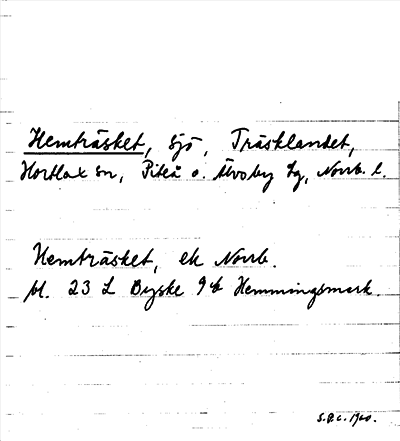 Hemträsket, sjö, Träsklandet,
Hortlax sn, Piteå o. Älvsby tg, Norrb. l.
Hemträsket, ek Norrb.
bl. 23 L Byske 9b Hemmingsmark.
S.O.C. 1960.